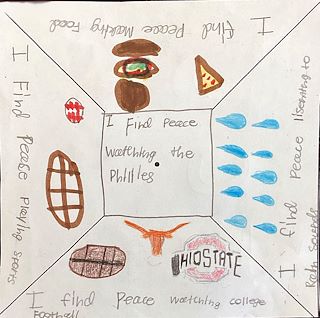 I find Peace Making Food
I Find Peace Playing sports
I Find Peace
watching the
Phillies
I find Peace lisening to
Rain Sounds
OHIO STATE
I find Peace watching college
Football